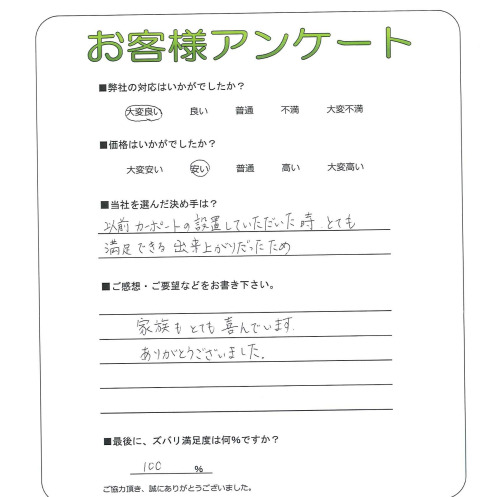 お客様アンケート
■弊社の対応はいかがでしたか？
大変良い 良い 普通 不満 大変不満
■価格はいかがでしたか？
大変安い 安い 普通 高い 大変高い
■当社を選んだ決め手は？
以前カーポートの設置していただいた時 とても
満足できる 出来上がりだったため
■ご感想・ご要望などをお書き下さい。
家族も とても 喜んでいます.
ありがとうございました.
■最後に、ズバリ満足度は何％ですか？
100 ％
ご協力頂き、誠にありがとうございました。